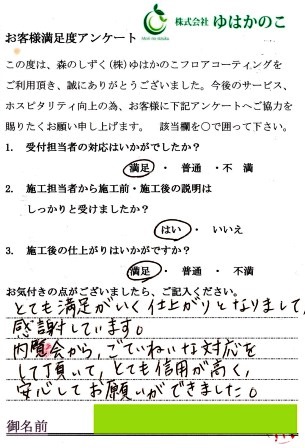 株式会社 ゆはかのこ
Mori no shizuku
お客様満足度アンケート
この度は、森のしずく(株)ゆはかのこフロアコーティングを
ご利用頂き、誠にありがとうございました。今後のサービス、
ホスピタリティ向上の為、お客様に下記アンケートへご協力を
賜りたくお願い申し上げます。 該当欄を〇で囲って下さい。
1. 受付担当者の対応はいかがでしたか?
満足 ・ 普通 ・ 不 満
2. 施工担当者から施工前・施工後の説明は
しっかりと受けましたか?
はい ・ いいえ
3. 施工後の仕上がりはいかがですか?
満足 ・ 普通 ・ 不 満
お気付きの点がございましたら、ご記入ください。
とても満足がいく仕上がりとなりまして、
感謝しています。
内覧会から、ごていねいな対応を
して頂いて、とても信用が高く、
安心してお願いができました。
御名前